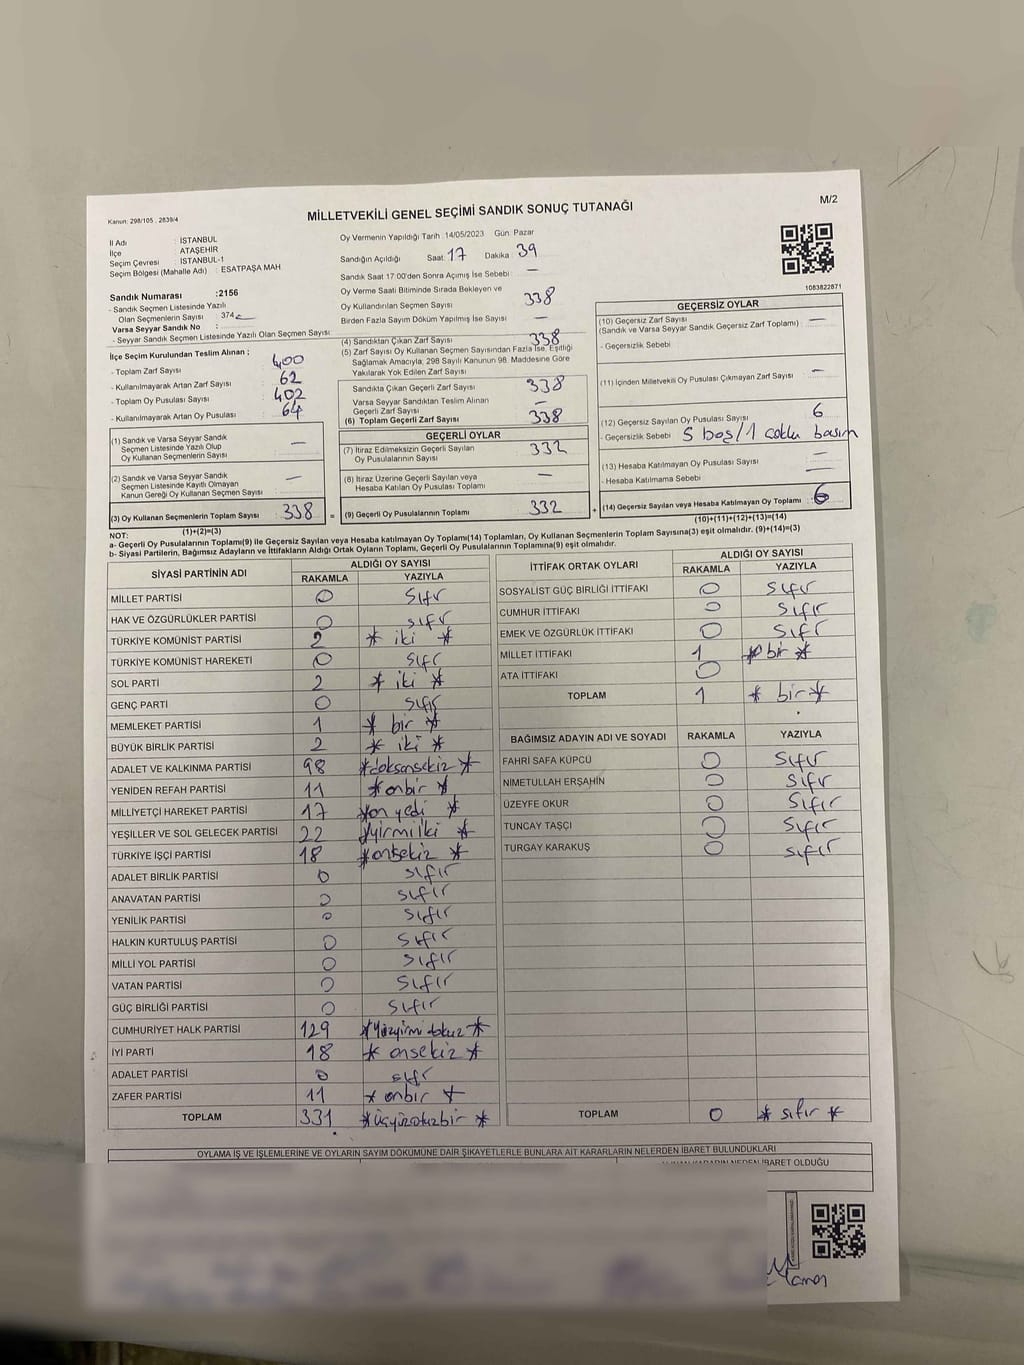 Kanun: 298/105 , 2839/4
MİLLETVEKİLİ GENEL SEÇİMİ SANDIK SONUÇ TUTANAĞI
M/2
İl Adı : İSTANBUL
İlçe : ATAŞEHİR
Seçim Çevresi : İSTANBUL-1
Seçim Bölgesi (Mahalle Adı) : ESATPAŞA MAH
Sandık Numarası :2156
- Sandık Seçmen Listesinde Yazılı
Olan Seçmenlerin Sayısı : 374
Varsa Seyyar Sandık No :
- Seyyar Sandık Seçmen Listesinde Yazılı Olan Seçmen Sayısı:
İlçe Seçim Kurulundan Teslim Alınan ;
- Toplam Zarf Sayısı : 400
- Kullanılmayarak Artan Zarf Sayısı : 62
- Toplam Oy Pusulası Sayısı : 402
- Kullanılmayarak Artan Oy Pusulası : 64
(1) Sandık ve Varsa Seyyar Sandık
Seçmen Listesinde Yazılı Olup
Oy Kullanan Seçmenlerin Sayısı : —
(2) Sandık ve Varsa Seyyar Sandık
Seçmen Listesinde Kayıtlı Olmayan
Kanun Gereği Oy Kullanan Seçmen Sayısı : —
(3) Oy Kullanan Seçmenlerin Toplam Sayısı : 338
(1)+(2)=(3)
Oy Vermenin Yapıldığı Tarih :14/05/2023 Gün: Pazar
Sandığın Açıldığı Saat: 17 Dakika: 39
Sandık Saat 17:00'den Sonra Açımış İse Sebebi : —
Oy Verme Saati Bitiminde Sırada Bekleyen ve
Oy Kullandırılan Seçmen Sayısı 338
Birden Fazla Sayım Döküm Yapılmış İse Sayısı : —
(4) Sandıktan Çıkan Zarf Sayısı : 338
(5) Zarf Sayısı Oy Kullanan Seçmen Sayısından Fazla İse, Eşitliği
Sağlamak Amacıyla, 298 Sayılı Kanunun 98. Maddesine Göre
Yakılarak Yok Edilen Zarf Sayısı
Sandıkta Çıkan Geçerli Zarf Sayısı : 338
Varsa Seyyar Sandıktan Teslim Alınan
Geçerli Zarf Sayısı : —
(6) Toplam Geçerli Zarf Sayısı : 338
GEÇERLİ OYLAR
(7) İtiraz Edilmeksizin Geçerli Sayılan
Oy Pusulalarının Sayısı : 332
(8) İtiraz Üzerine Geçerli Sayılan veya
Hesaba Katılan Oy Pusulası Toplamı : —
= (9) Geçerli Oy Pusulalarının Toplamı : 332
1083822871
GEÇERSİZ OYLAR
(10) Geçersiz Zarf Sayısı : —
(Sandık ve Varsa Seyyar Sandık Geçersiz Zarf Toplamı)
- Geçersizlik Sebebi :
(11) İçinden Milletvekili Oy Pusulası Çıkmayan Zarf Sayısı : —
(12) Geçersiz Sayılan Oy Pusulası Sayısı : 6
- Geçersizlik Sebebi : 5 boş/1 çoklu basım
(13) Hesaba Katılmayan Oy Pusulası Sayısı : —
- Hesaba Katılmama Sebebi : —
+ (14) Geçersiz Sayılan veya Hesaba Katılmayan Oy Toplamı : 6
(10)+(11)+(12)+(13)=(14)
NOT:
a- Geçerli Oy Pusulalarının Toplamı(9) ile Geçersiz Sayılan veya Hesaba katılmayan Oy Toplamı(14) Toplamları, Oy Kullanan Seçmenlerin Toplam Sayısına(3) eşit olmalıdır. (9)+(14)=(3)
b- Siyasi Partilerin, Bağımsız Adayların ve İttifakların Aldığı Ortak Oyların Toplamı, Geçerli Oy Pusulalarının Toplamına(9) eşit olmalıdır.
SİYASİ PARTİNİN ADI ALDIĞI OY SAYISI
RAKAMLA YAZIYLA
MİLLET PARTİSİ 0 sıfır
HAK VE ÖZGÜRLÜKLER PARTİSİ 0 sıfır
TÜRKİYE KOMÜNİST PARTİSİ 2 * iki *
TÜRKİYE KOMÜNİST HAREKETİ 0 sıfır
SOL PARTİ 2 * iki *
GENÇ PARTİ 0 sıfır
MEMLEKET PARTİSİ 1 * bir *
BÜYÜK BİRLİK PARTİSİ 2 * iki *
ADALET VE KALKINMA PARTİSİ 98 *doksansekiz *
YENİDEN REFAH PARTİSİ 11 *onbir *
MİLLİYETÇİ HAREKET PARTİSİ 17 *on yedi *
YEŞİLLER VE SOL GELECEK PARTİSİ 22 *yirmiiki *
TÜRKİYE İŞÇİ PARTİSİ 18 *onsekiz *
ADALET BİRLİK PARTİSİ 0 sıfır
ANAVATAN PARTİSİ 0 sıfır
YENİLİK PARTİSİ 0 sıfır
HALKIN KURTULUŞ PARTİSİ 0 sıfır
MİLLİ YOL PARTİSİ 0 sıfır
VATAN PARTİSİ 0 sıfır
GÜÇ BİRLİĞİ PARTİSİ 0 sıfır
CUMHURİYET HALK PARTİSİ 129 *yüzyirmi dokuz *
İYİ PARTİ 18 * onsekiz *
ADALET PARTİSİ 0 sıfır
ZAFER PARTİSİ 11 * onbir *
TOPLAM 331 *üçyüzotuzbir *
İTTİFAK ORTAK OYLARI ALDIĞI OY SAYISI
RAKAMLA YAZIYLA
SOSYALİST GÜÇ BİRLİĞİ İTTİFAKI 0 sıfır
CUMHUR İTTİFAKI 0 sıfır
EMEK VE ÖZGÜRLÜK İTTİFAKI 0 sıfır
MİLLET İTTİFAKI 1 * bir *
ATA İTTİFAKI 0
TOPLAM 1 * bir *
BAĞIMSIZ ADAYIN ADI VE SOYADI RAKAMLA YAZIYLA
FAHRİ SAFA KÜPCÜ 0 sıfır
NİMETULLAH ERŞAHİN 0 sıfır
ÜZEYFE OKUR 0 sıfır
TUNCAY TAŞÇI 0 sıfır
TURGAY KARAKUŞ 0 sıfır
TOPLAM 0 * sıfır *
OYLAMA İŞ VE İŞLEMLERİNE VE OYLARIN SAYIM DÖKÜMÜNE DAİR ŞİKAYETLERLE BUNLARA AİT KARARLARIN NELERDEN İBARET BULUNDUKLARI
NEDEN İBARET OLDUĞU